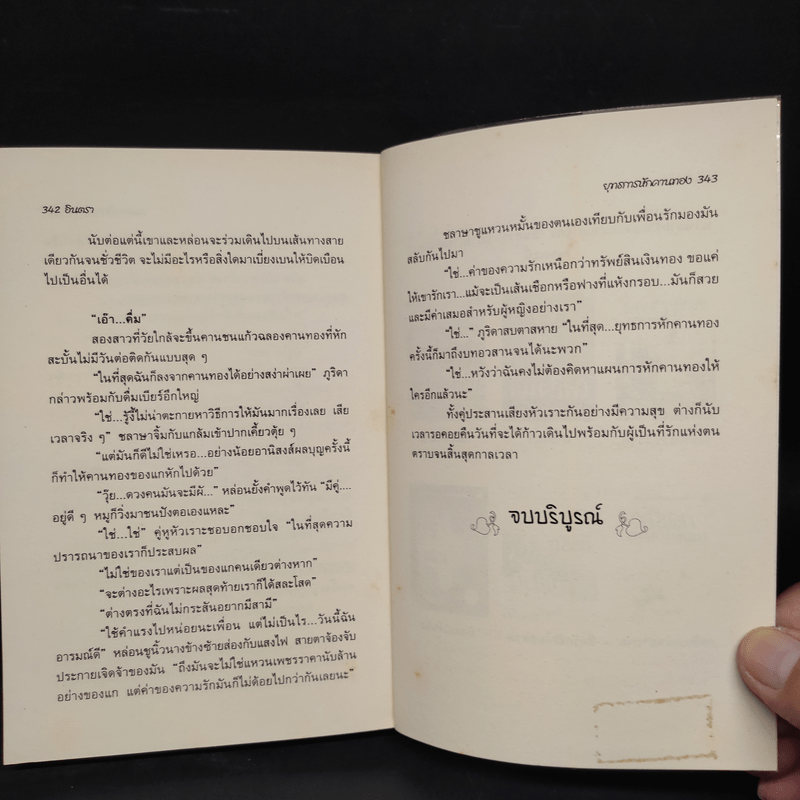 342 อินตรา
นับต่อแต่นี้เขาและหล่อนจะร่วมเดินไปบนเส้นทางสาย
เดียวกันจนชั่วชีวิต จะไม่มีอะไรหรือสิ่งใดมาเบี่ยงเบนให้บิดเบือน
ไปเป็นอื่นได้
“เอ๊า...ดื่ม”
สองสาวที่วัยใกล้จะขึ้นคานชนแก้วฉลองคานทองที่หัก
สะบั้นไม่มีวันต่อติดกันแบบสุด ๆ
“ในที่สุดฉันก็ลงจากคานทองได้อย่างสง่าผ่าเผย” ภูริดา
กล่าวพร้อมกับดื่มเบียร์อึกใหญ่
“ใช่...รู้งี้ไม่น่าตะกายหาวิธีการให้มันมากเรื่องเลย เสีย
เวลาจริง ๆ” ชลาษาจิ้มกับแกล้มเข้าปากเคี้ยวตุ้ย ๆ
“แต่มันก็ดีไม่ใช่เหรอ...อย่างน้อยอานิสงส์ผลบุญครั้งนี้
ก็ทำให้คานทองของแกหักไปด้วย”
“วุ๊ย...ดวงคนมันจะมีผั...” หล่อนยั้งคำพูดไว้ทัน “มีคู่....
อยู่ดี ๆ หมูก็วิ่งมาชนปังตอเองแหละ”
“ใช่...ใช่” คู่หูหัวเราะชอบอกชอบใจ “ในที่สุดความ
ปรารถนาของเราก็ประสบผล”
“ไม่ใช่ของเราแต่เป็นของแกคนเดียวต่างหาก”
“จะต่างอะไรเพราะผลสุดท้ายเราก็ได้สละโสด”
“ต่างตรงที่ฉันไม่กระสันอยากมีสามี”
“ใช้คำแรงไปหน่อยนะเพื่อน แต่ไม่เป็นไร...วันนี้ฉัน
อารมณ์ดี” หล่อนชูนิ้วนางข้างซ้ายส่องกับแสงไฟ สายตาจ้องจับ
ประกายเจิดจ้าของมัน “ถึงมันจะไม่ใช่แหวนเพชรราคานับล้าน
อย่างของแก แต่ค่าของความรักมันก็ไม่ด้อยไปกว่ากันเลยนะ”
ยุทธการหักคานทอง 343
ชลาษาชูแหวนหมั้นของตนเองเทียบกับเพื่อนรักมองมัน
สลับกันไปมา
“ใช่...ค่าของความรักเหนือกว่าทรัพย์สินเงินทอง ขอแค่
ให้เขารักเรา...แม้จะเป็นเส้นเชือกหรือฟางที่แห้งกรอบ...มันก็สวย
และมีค่าเสมอสำหรับผู้หญิงอย่างเรา”
“ใช่...” ภูริดาสบตาสหาย “ในที่สุด...ยุทธการหักคานทอง
ครั้งนี้ก็มาถึงบทอวสานจนได้นะพวก”
“ใช่...หวังว่าฉันคงไม่ต้องคิดหาแผนการหักคานทองให้
ใครอีกแล้วนะ”
ทั้งคู่ประสานเสียงหัวเราะกันอย่างมีความสุข ต่างก็นับ
เวลารอคอยคืนวันที่จะได้ก้าวเดินไปพร้อมกับผู้เป็นที่รักแห่งตน
ตราบจนสิ้นสุดกาลเวลา
จบบริบูรณ์